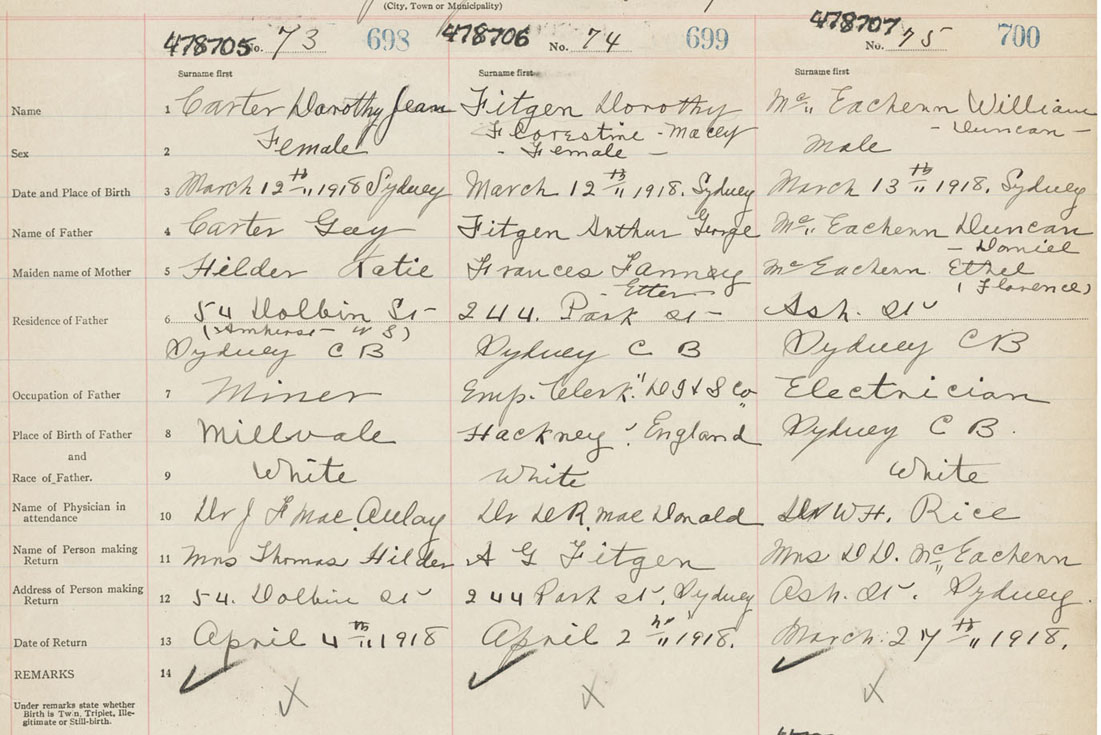 (City, Town or Municipality)
478705 No. 73 698 478706 No. 74 699 478707 No. 75 700
Surname first Surname first Surname first
Name 1 Carter Dorothy Jean Fitgen Dorothy Mc Eachenn William
Florestine - Macey - Duncan -
Sex 2 Female - Female - Male
Date and Place of Birth 3 March 12th 1918 Sydney March 12th 1918. Sydney March 13th 1918. Sydney
Name of Father 4 Carter Guy Fitgen Arthur George Mc Eachenn Duncan
- Daniel
Maiden name of Mother 5 Hilder Katie Frances Fanney Mc Eachenn Ethel
- Etter (Florence)
Residence of Father 6 54 Dolbin St 244. Park St - Ash. St
(Amherst - N S)
Sydney C B Sydney C B Sydney C B
Occupation of Father 7 Miner Emp. Clerk. "D I & S Co" Electrician
Place of Birth of Father 8 Millvale Hackney, England Sydney C B.
and
Race of Father. 9 White White White
Name of Physician in
attendance 10 Dr J F Mac Aulay Dr D R Mac Donald Dr W H. Rice
Name of Person making
Return 11 Mrs Thomas Hilder A G Fitgen Mrs D D. Mc Eachenn
Address of Person making
Return 12 54. Dolbin St 244 Park St. Sydney Ash. St. Sydney.
Date of Return 13 April 4th 1918 April 2nd 1918. March. 27th 1918.
REMARKS 14
Under remarks state whether
Birth is Twin, Triplet, Ille-
gitimate or Still-birth.